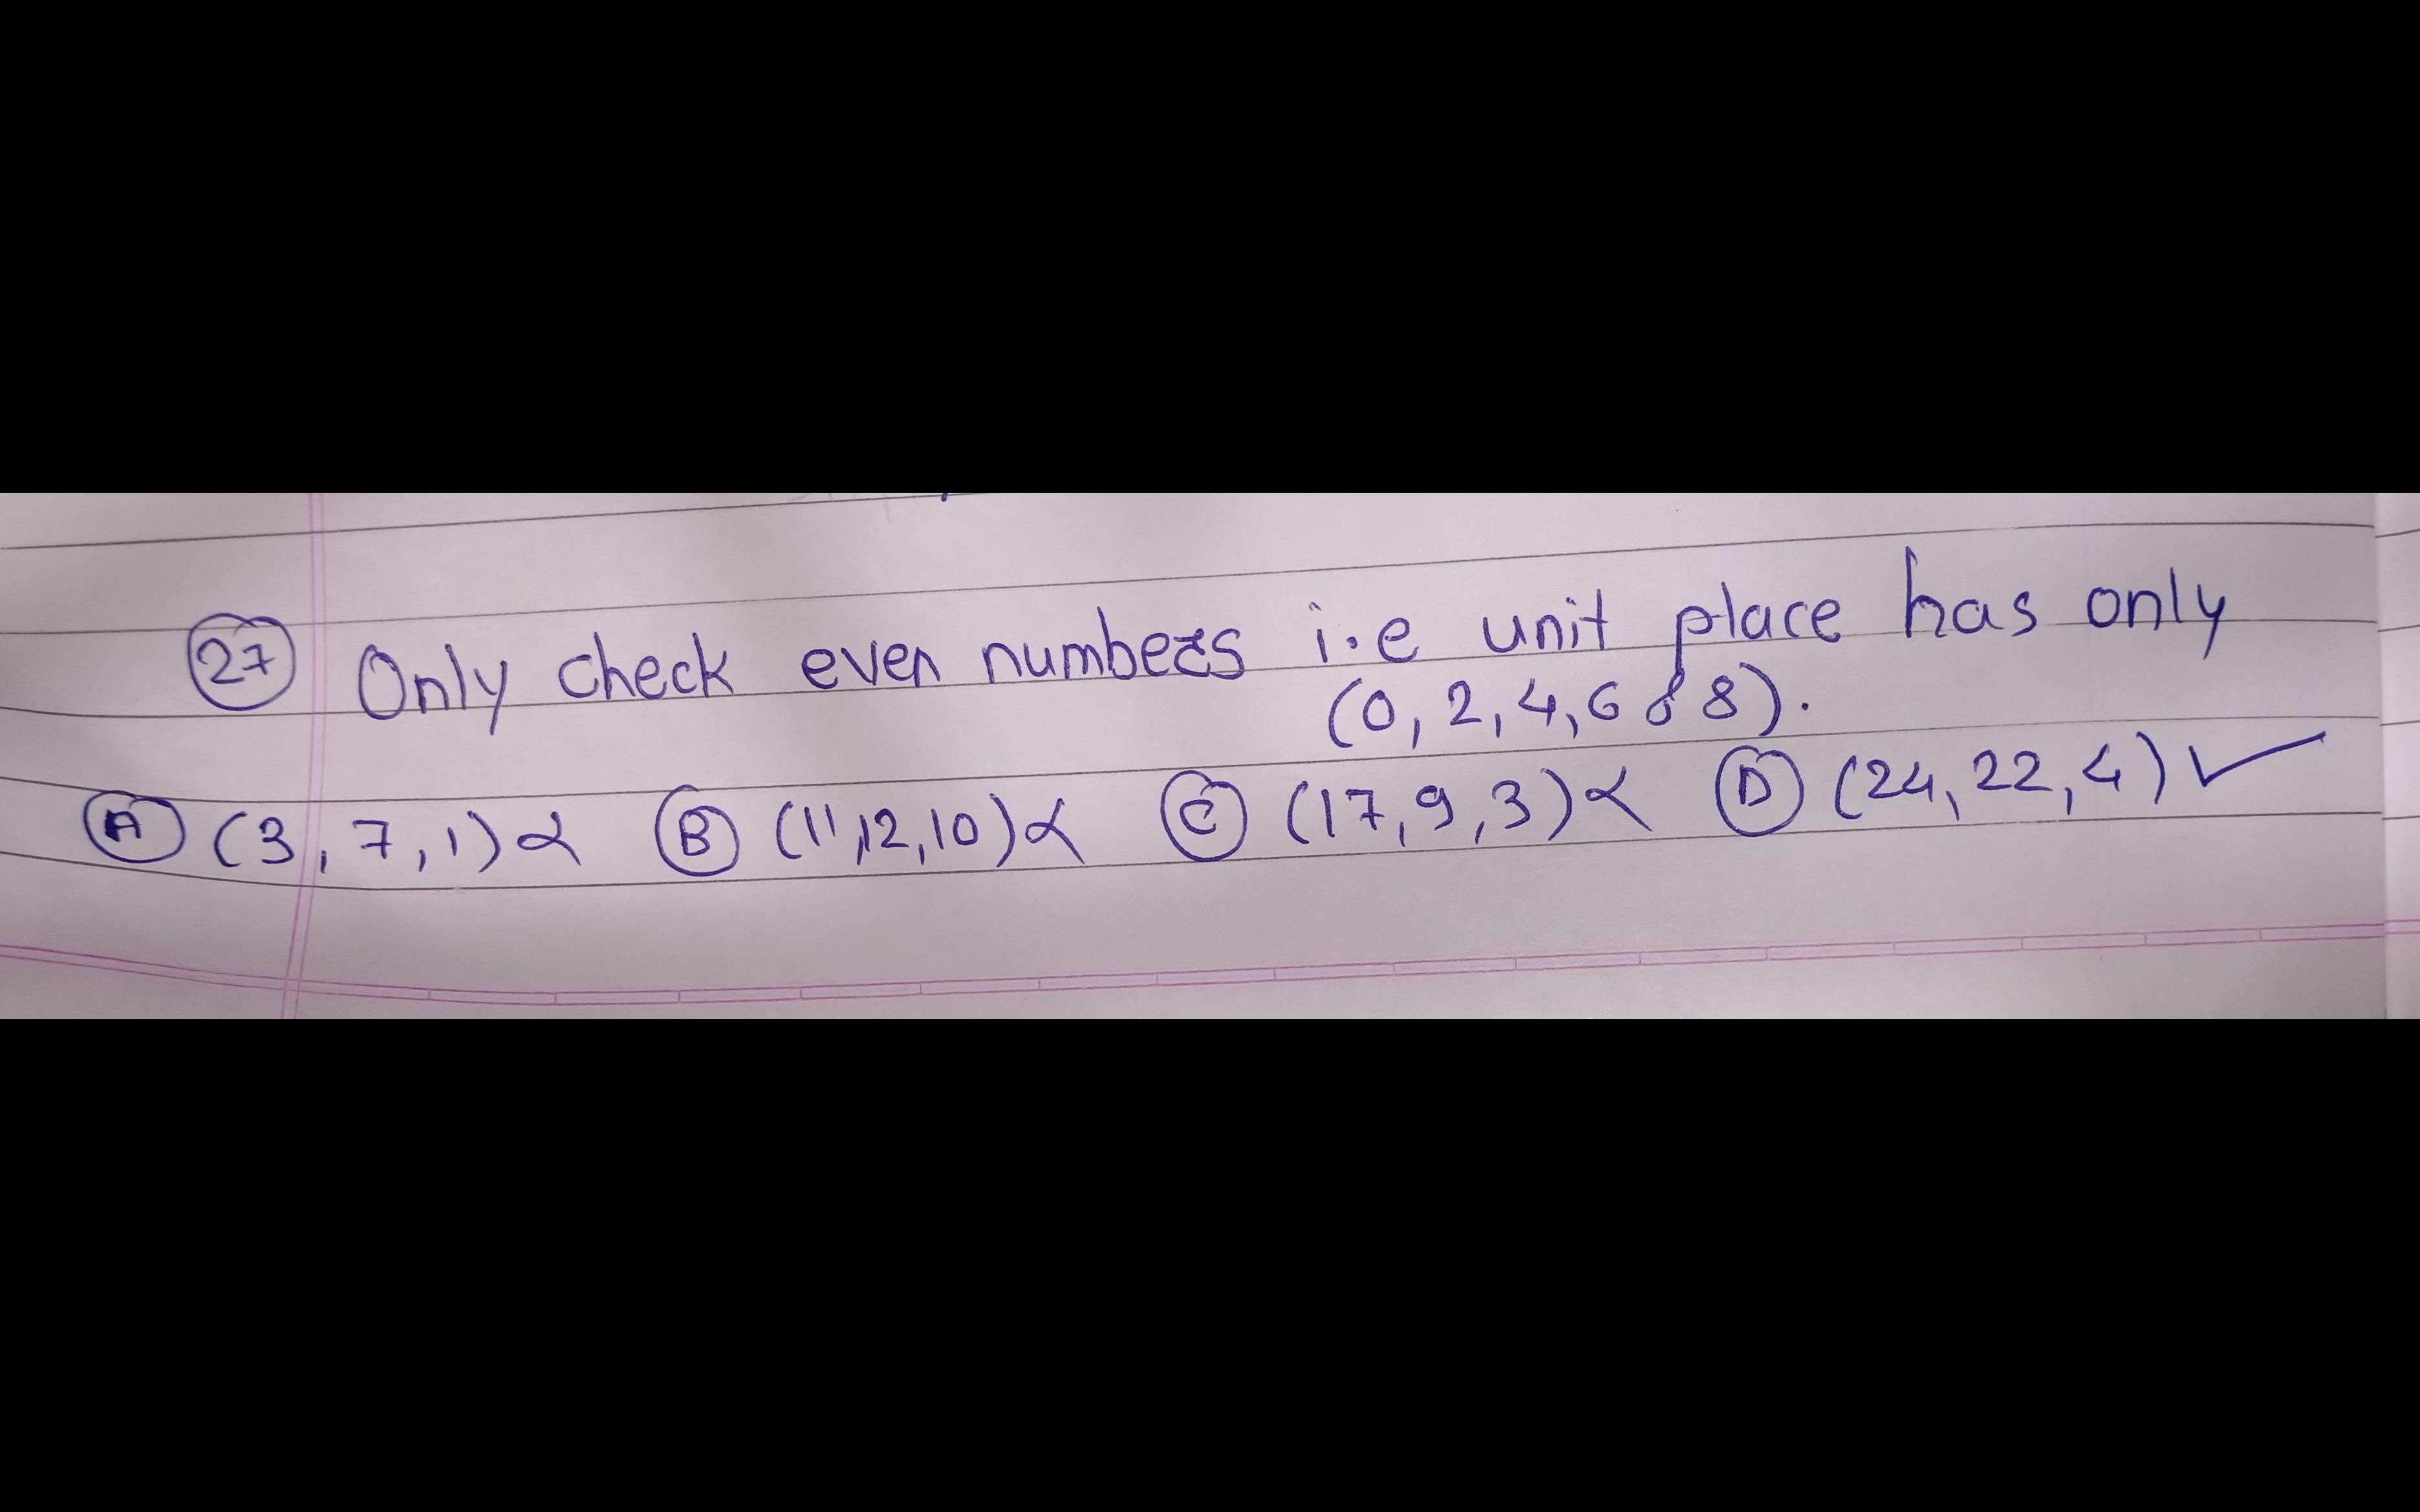 27 Only check even numbers i.e unit place has only
(0, 2, 4, 6 & 8).
A (3, 7, 1) x B (11, 12, 10) x C (17, 9, 3) x D (24, 22, 4) ✓